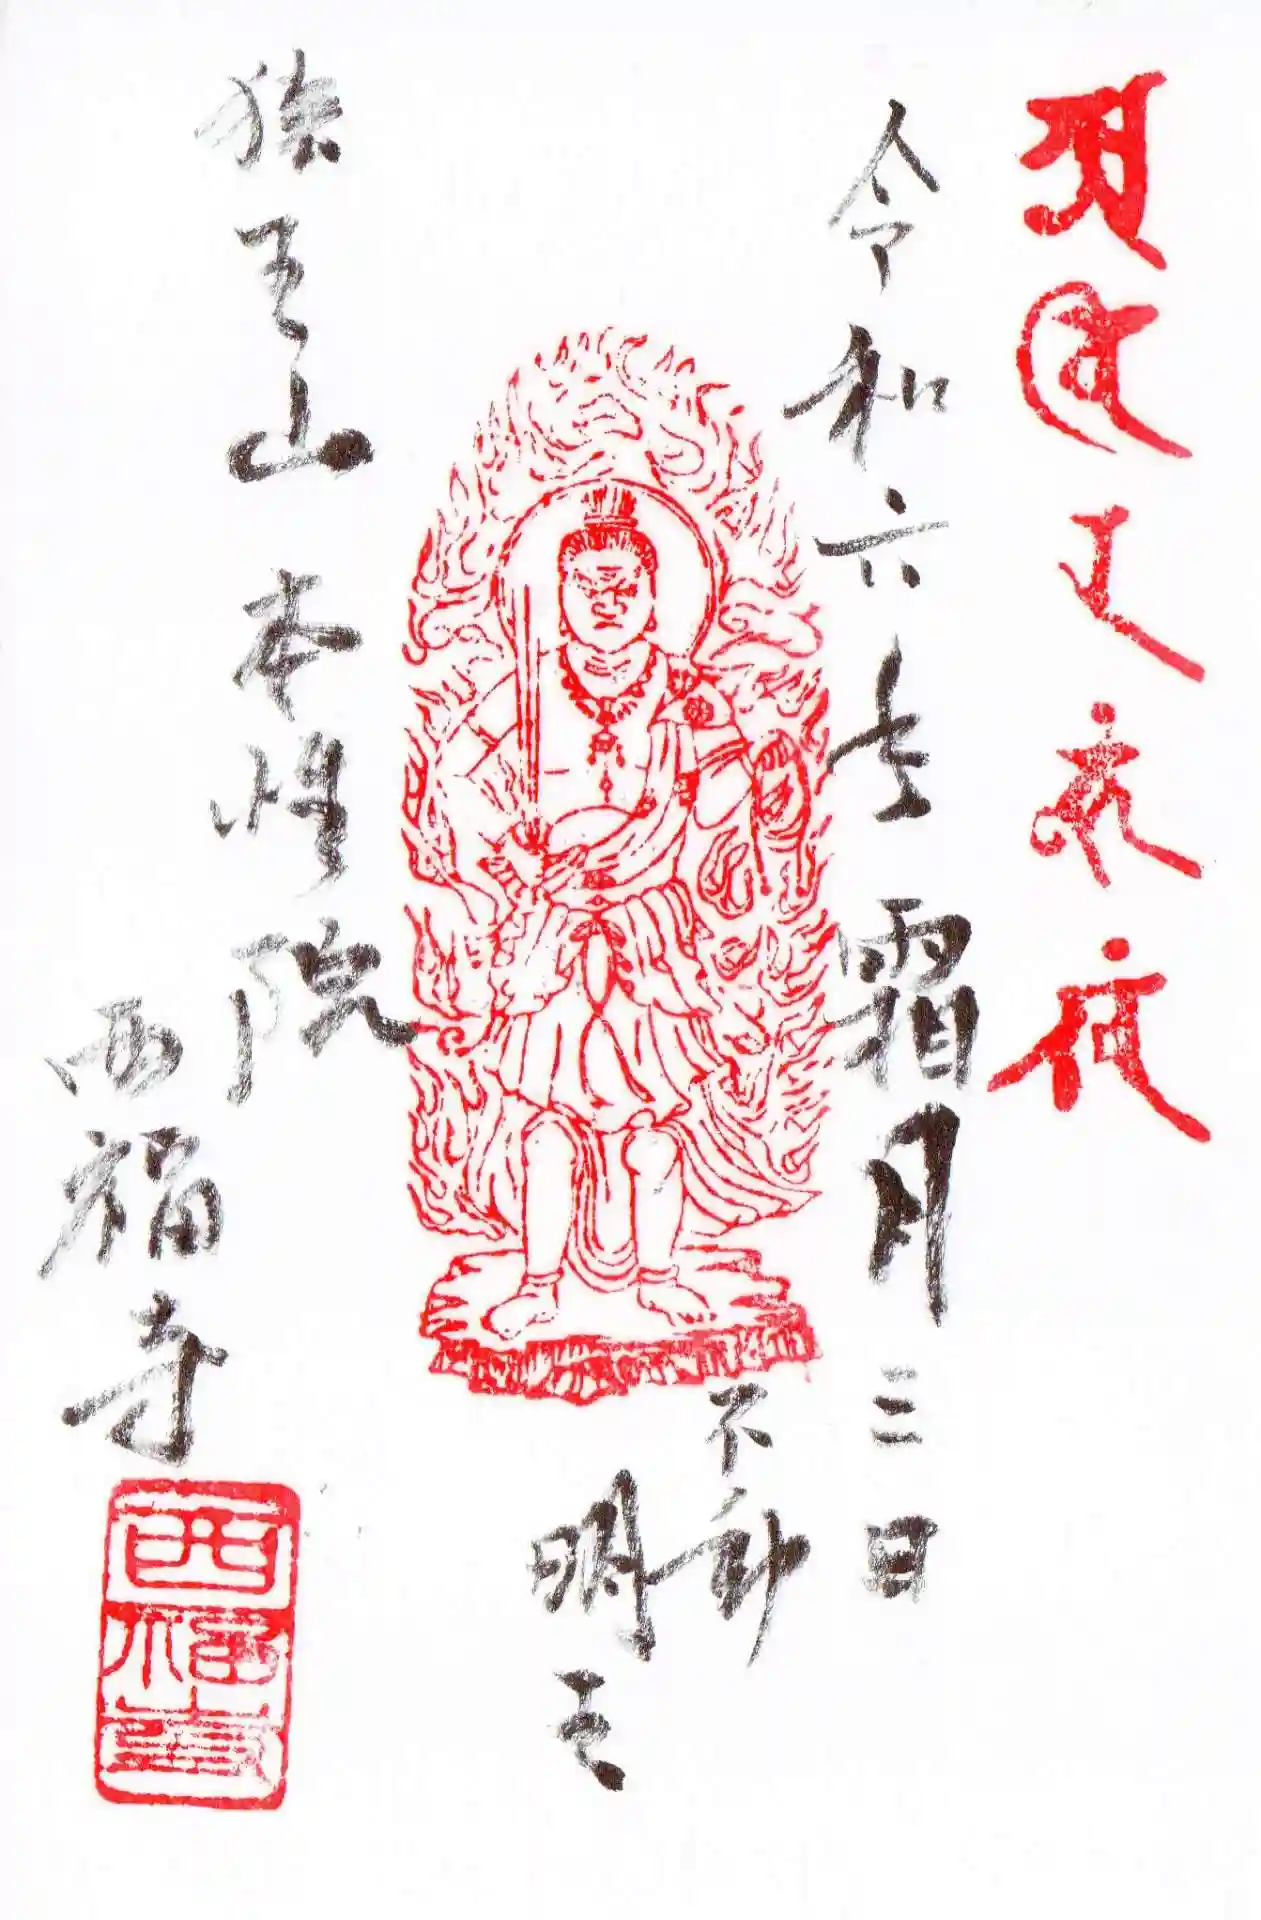 𑖀𑖪𑖰𑖨𑖮𑖳𑖽𑖏𑖽
令和六年霜月三日
不動
明王
王山 本性院
西福寺
西福寺